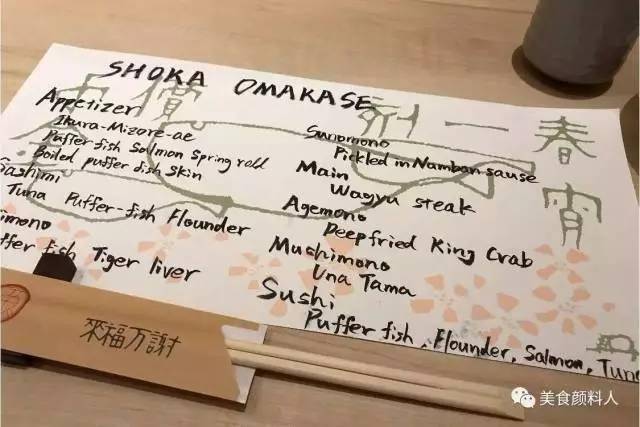 SHOKA OMAKASE
Appetizer
Ikura-Mizore-ae
Puffer fish Salmon Spring roll
Boiled puffer fish skin
Sashimi
Tuna Puffer-fish Flounder
imono
ffer fish Tiger liver
Sunomono
Pickled in Namban sause
Main
Wagyu steak
Agemono
Deepfried King Crab
Mushimono
Una Tama
Sushi
Puffer fish, Flounder, Salmon, Tuna
春宵
一刻
價
千
金
來福万謝
美食颜料人